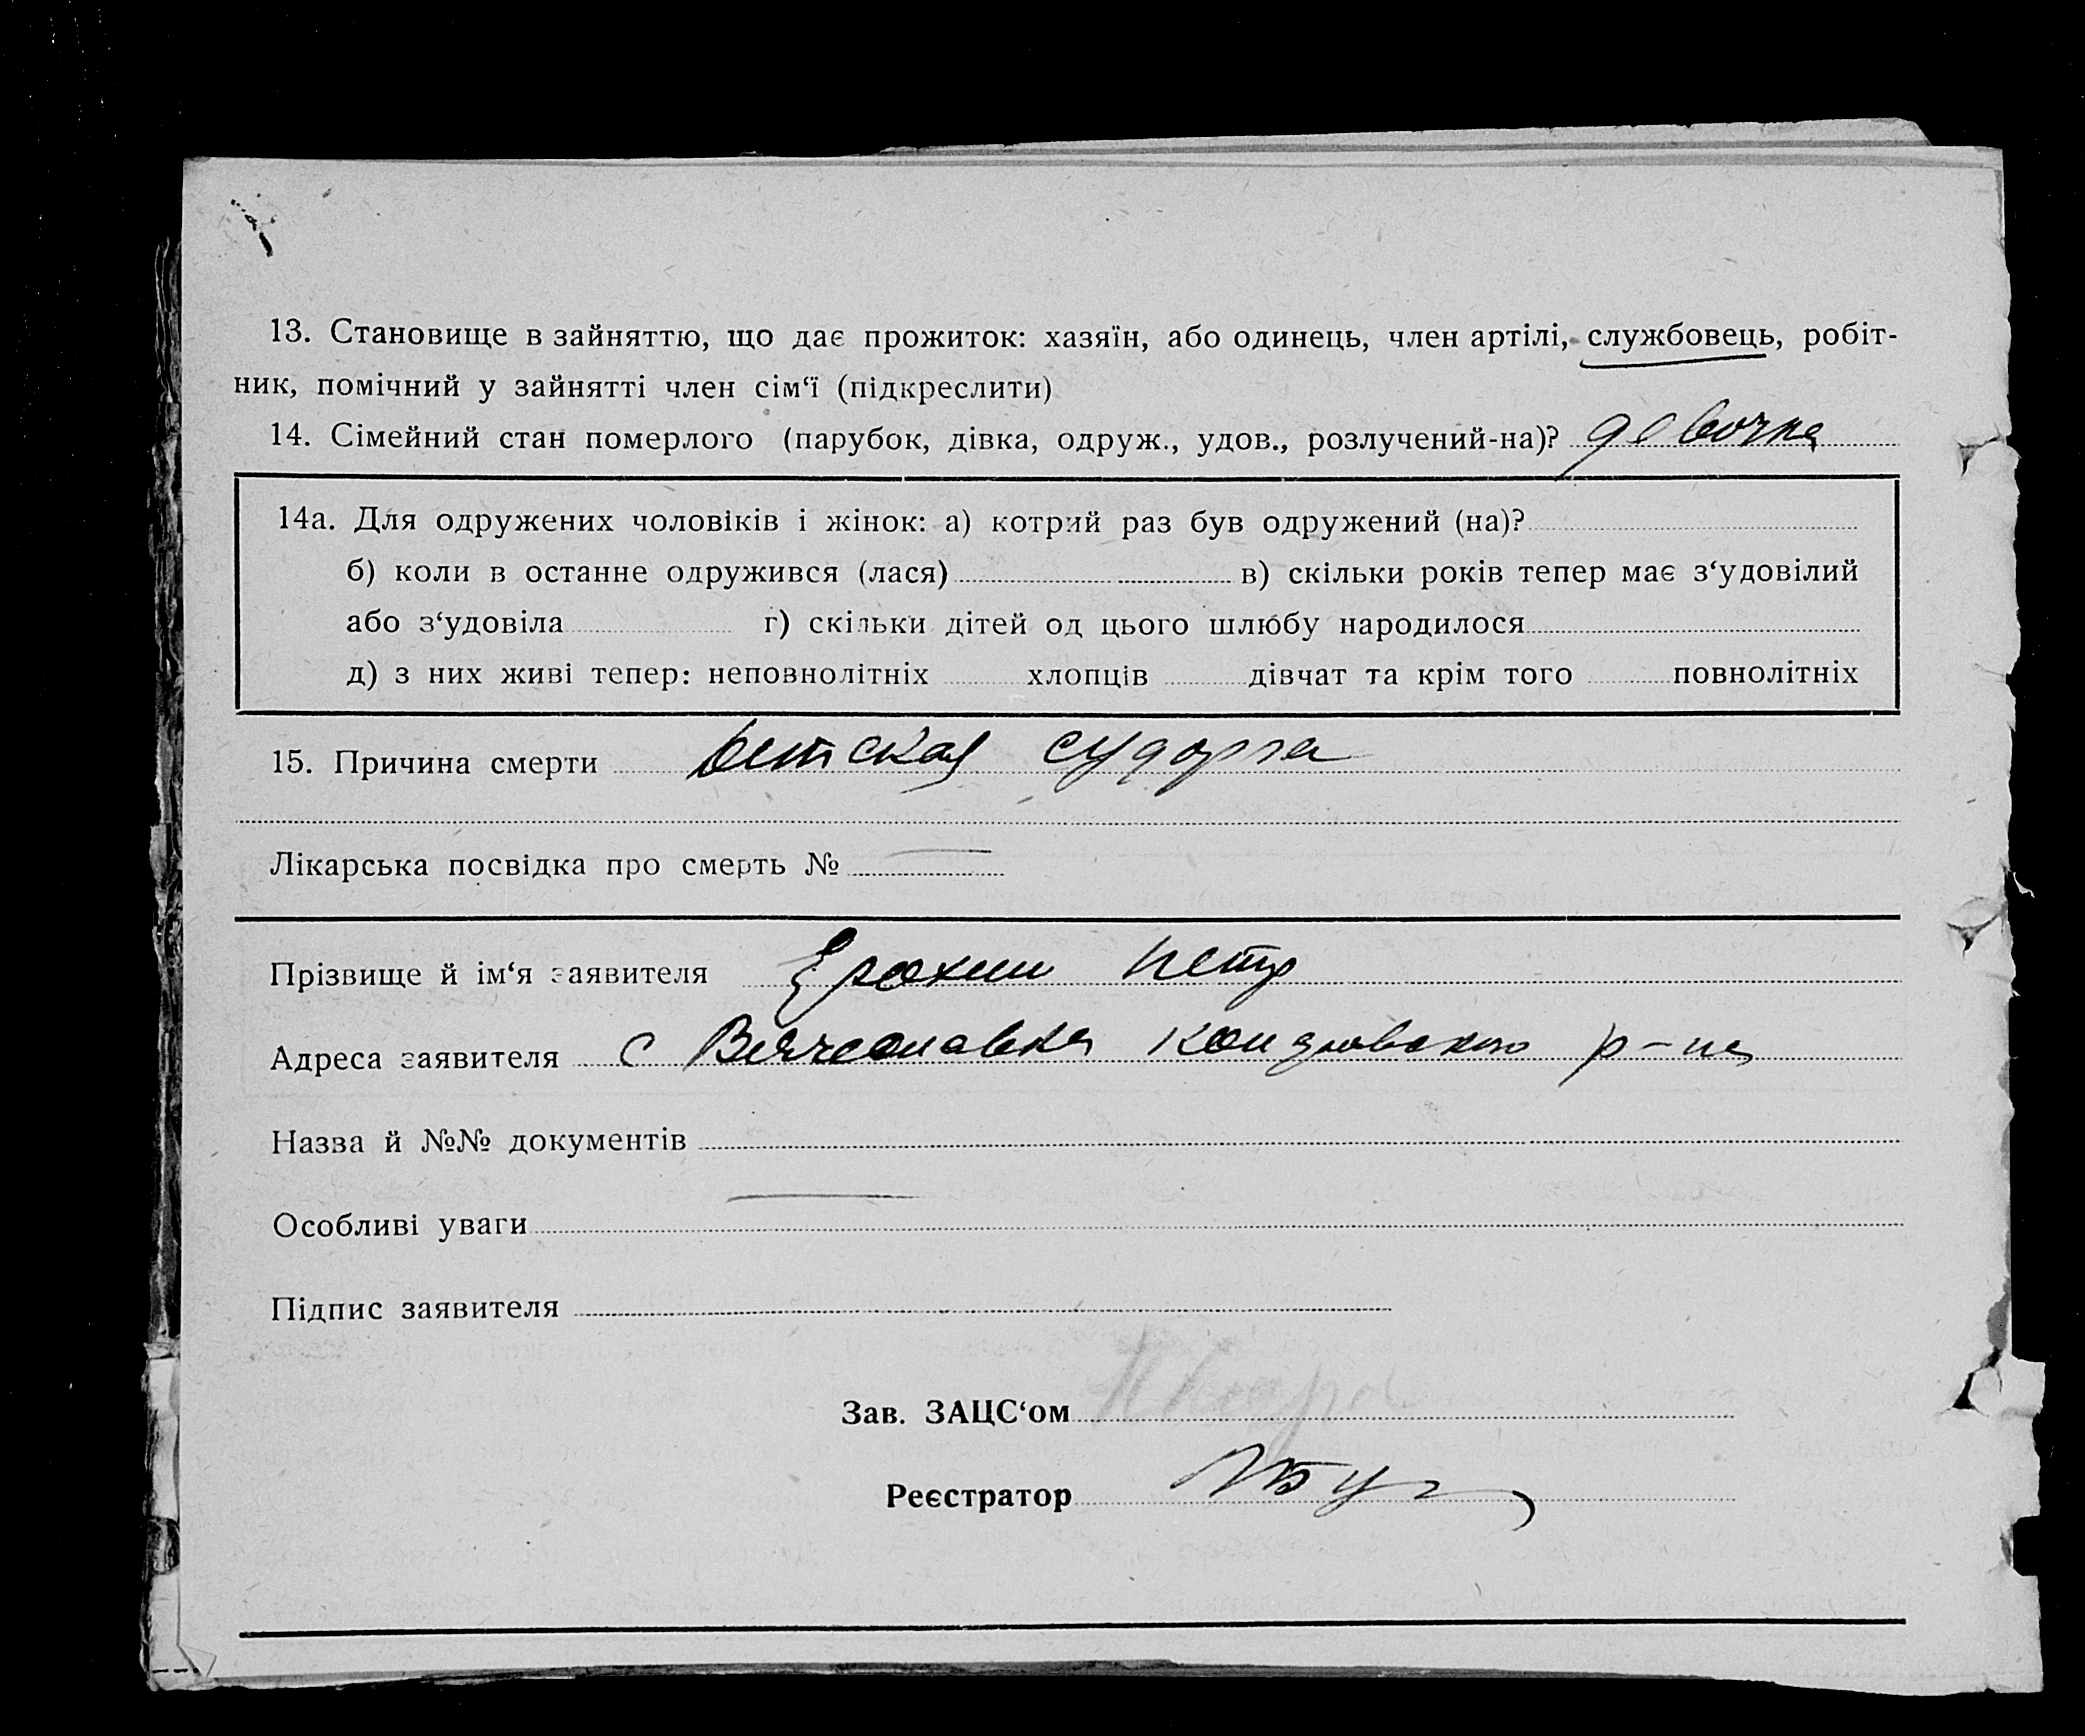 13. Становище в зайняттю, що дає прожиток: хазяїн, або одинець, член артілі, службовець, робіт-
ник, помічний у зайнятті член сім‘ї (підкреслити)
14. Сімейний стан померлого (парубок, дівка, одруж., удов., розлучений-на)? девочка
14а. Для одружених чоловіків і жінок: а) котрий раз був одружений (на)?
б) коли в останнє одружився (лася) в) скільки років тепер має з‘удовілий
або з‘удовіла г) скільки дітей од цього шлюбу народилося
д) з них живі тепер: неповнолітніх хлопців дівчат та крім того повнолітніх
15. Причина смерти Детская судорга
Лікарська посвідка про смерть № —
Прізвище й ім‘я заявителя Ерохин Петр
Адреса заявителя с Вячеславка р-на
Назва й №№ документів
Особливі уваги
Підпис заявителя
Зав. ЗАЦС‘ом
Реєстратор